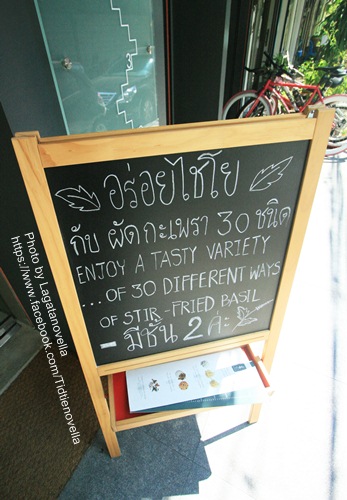 อร่อยไชโย
กับ ผัดกะเพรา 30 ชนิด
ENJOY A TASTY VARIETY
... OF 30 DIFFERENT WAYS
OF STIR-FRIED BASIL
- มีชั้น 2 ค่ะ
Photo by Lagatanovella
https://www.facebook.com/Tidtienovella